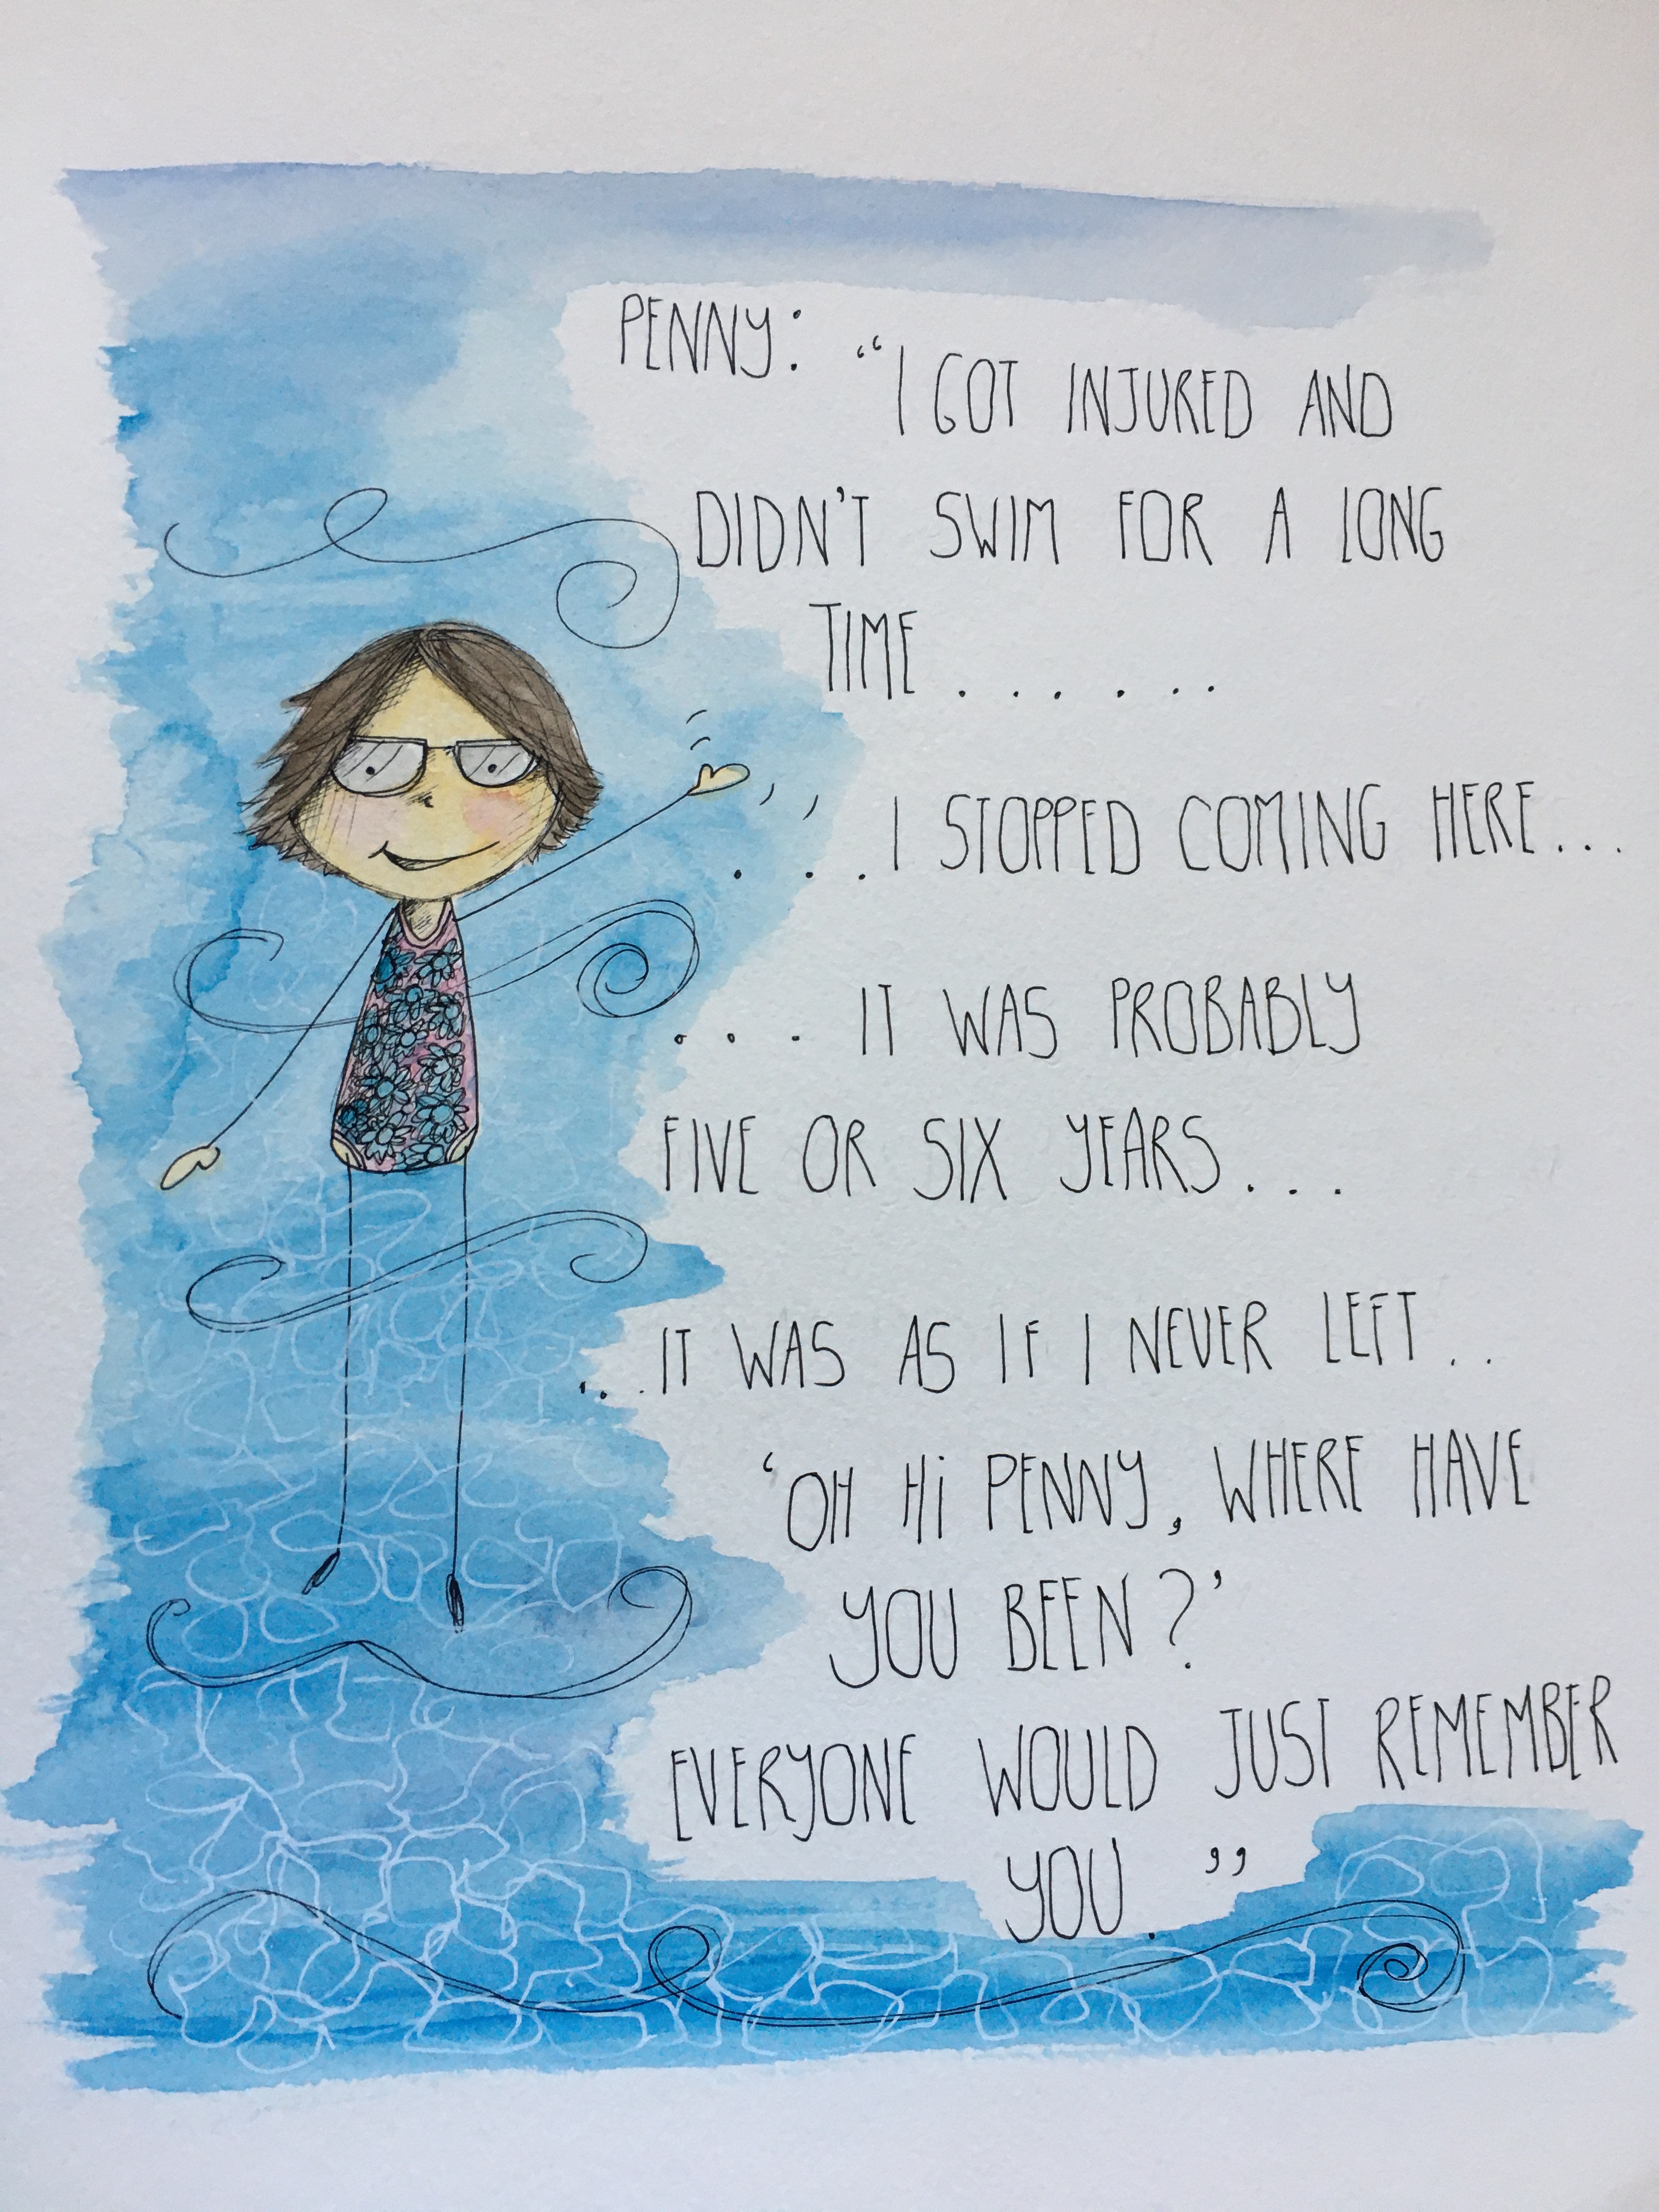 PENNY: "I GOT INJURED AND
DIDN'T SWIM FOR A LONG
TIME . . . . . .
. . . I STOPPED COMING HERE . . .
. . . IT WAS PROBABLY
FIVE OR SIX YEARS . . .
. . . IT WAS AS IF I NEVER LEFT . .
'OH Hi PENNY, WHERE HAVE
YOU BEEN?'
EVERYONE WOULD JUST REMEMBER
YOU."